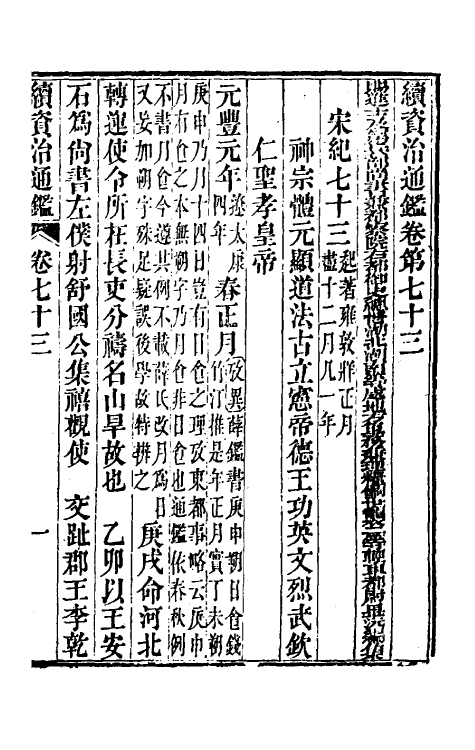 續資治通鑑卷第七十三
宋紀七十三起著雍敦牂正月盡十二月凡一年
神宗體元顯道法古立憲帝德王功英文烈武欽
仁聖孝皇帝
元豐元年遼太康四年春正月攷異薛鑑書庚申朔日食錢竹汀推是年正月實丁未朔
庚申乃月十四日豈有日食之理攷東都事略云庚申月有食之本無朔字乃月食非日食也通鑑依春秋例
不書月食今遵其例不載薛氏改月爲日又妄加朔字殊足疑誤後學故特辨之庚戌命河北
轉運使令所在長吏分禱名山旱故也 乙卯以王安
石爲尚書左僕射舒國公集禧觀使 交趾郡王李乾
續資治通鑑 卷七十三 一